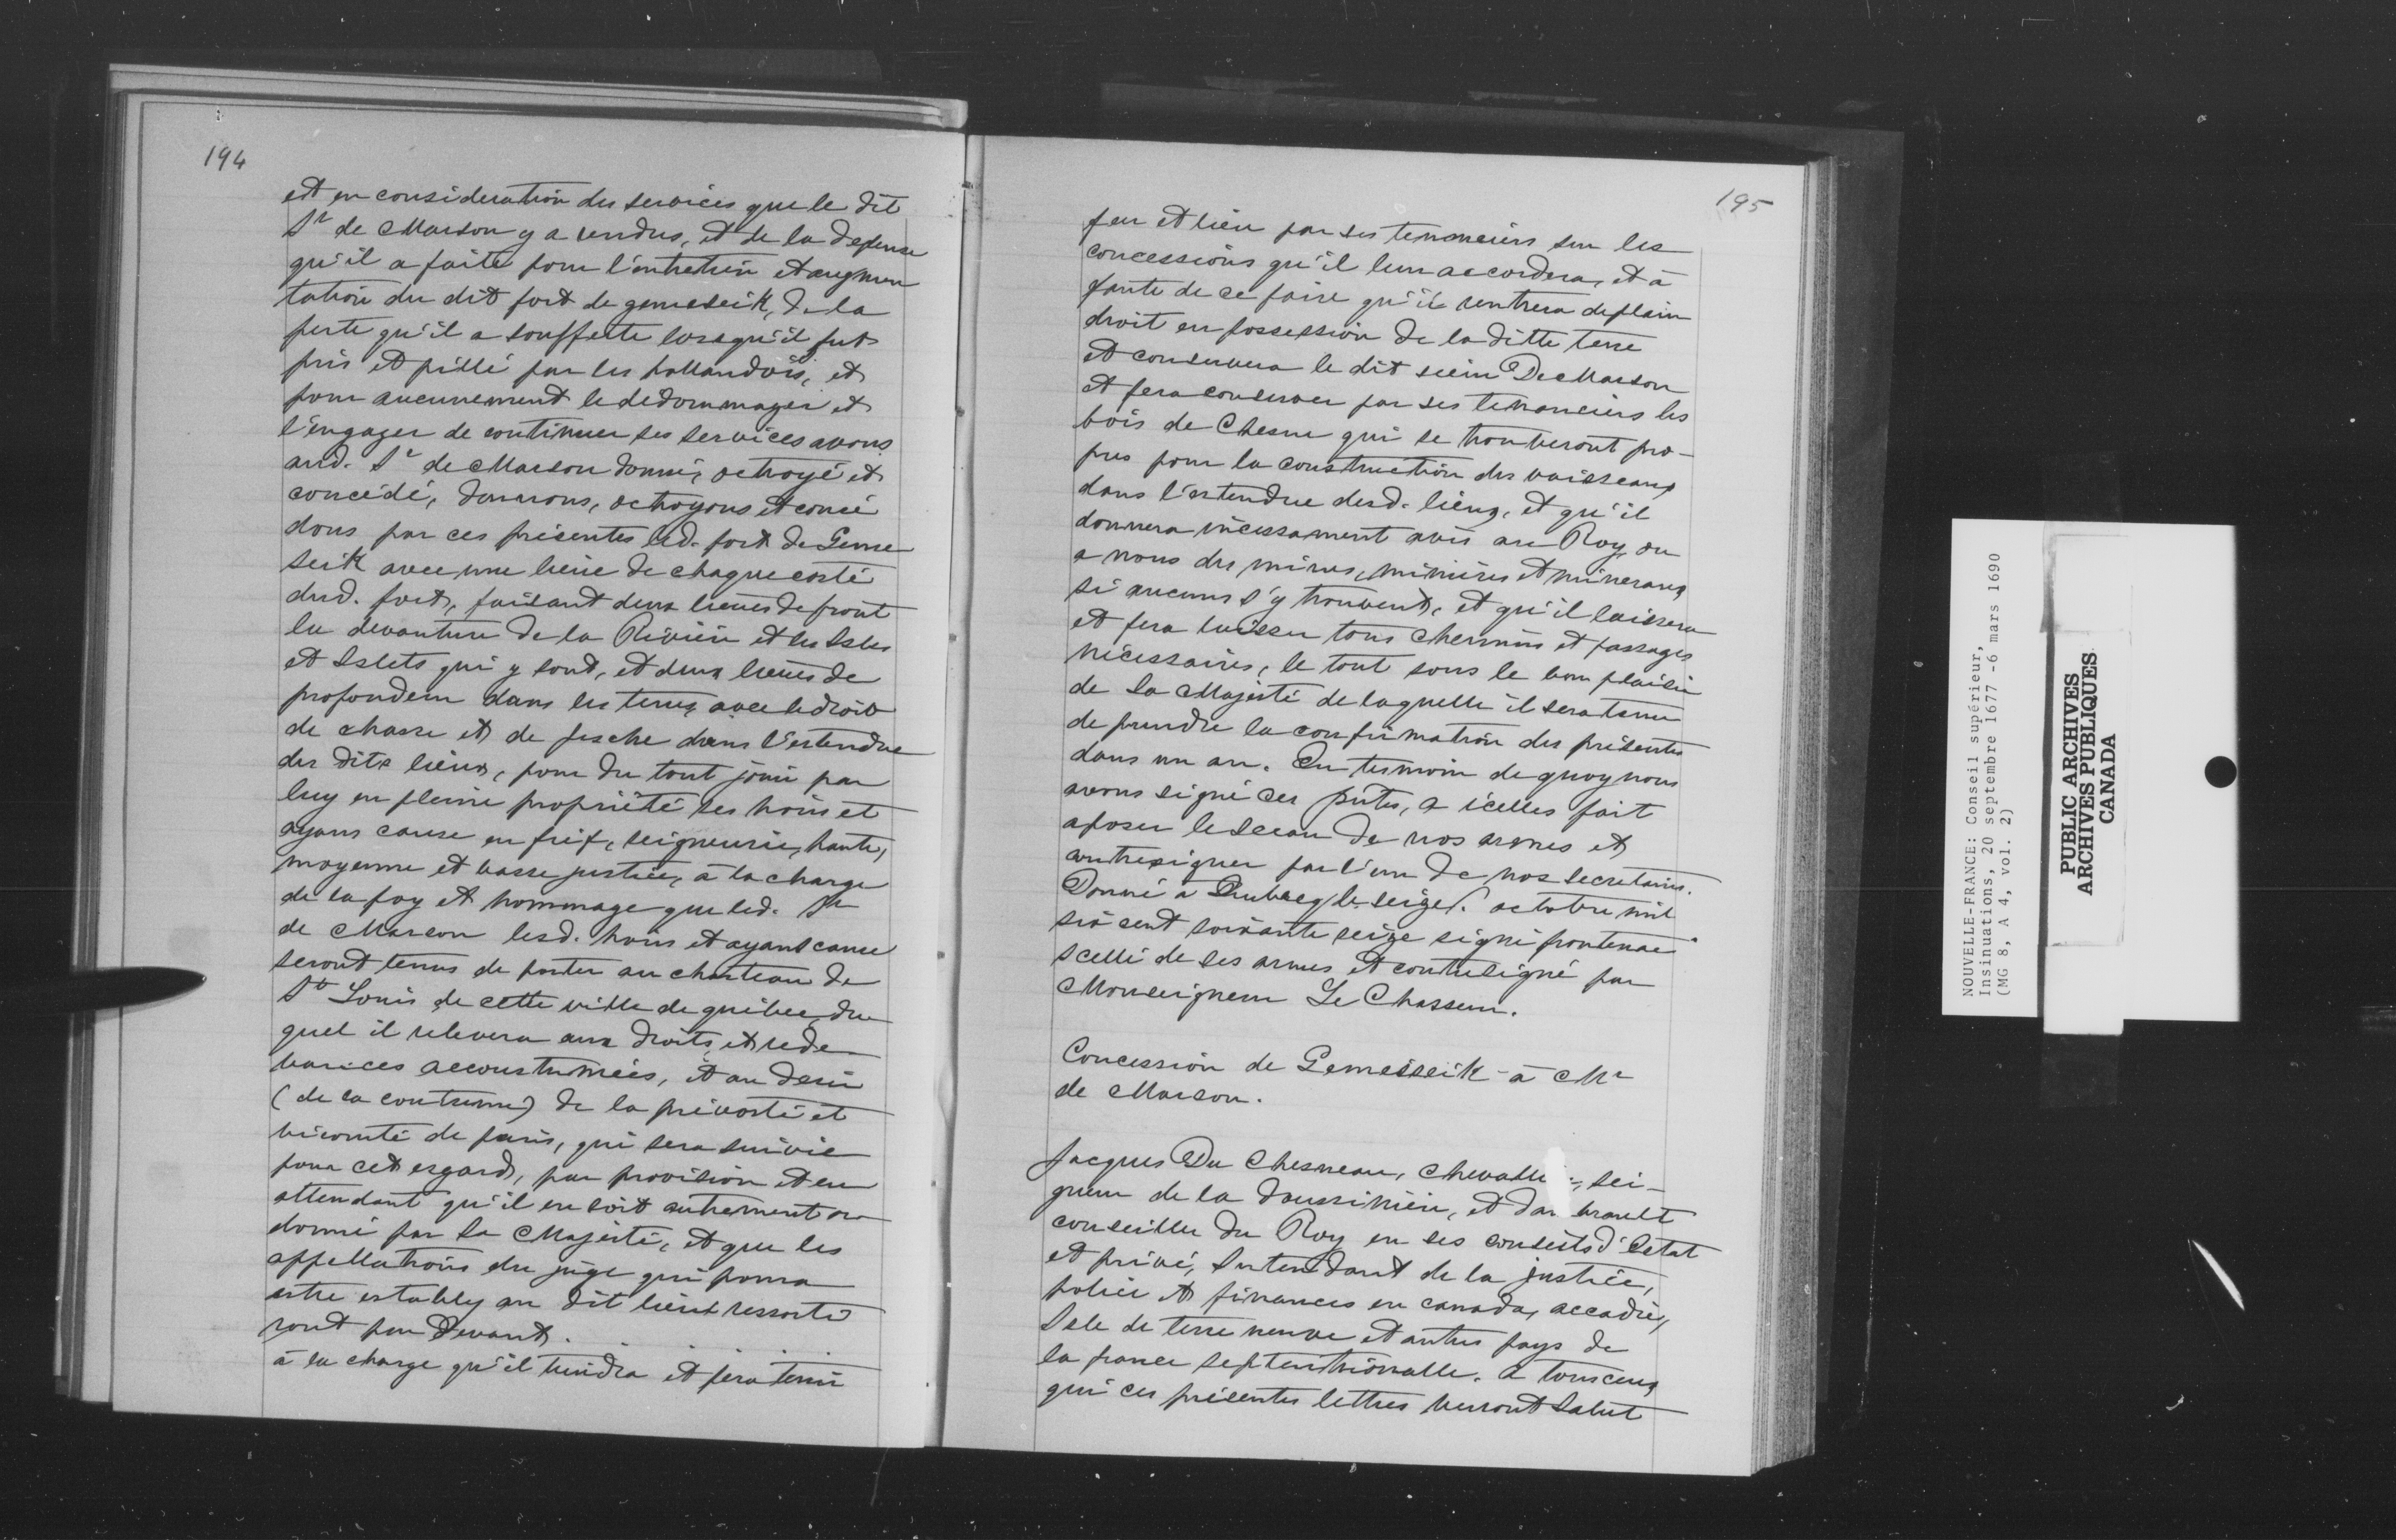 194
et en consideration des services que le dit
Sr de Marson y a rendus, et de la depense
qu'il a faite pour l'entretien et augmen
tation du dit fort de gemeseik, de la
perte qu'il a soufferte lorsqu'il fut
pris et pillé par les hollandois, et
pour aucunement le dedommager et
l'engager de continuer ses services avons
aud. Sr de Marson donné, octroyé et
concédé, donnons, octroyons et concé
dons par ces présentes led. fort de Geme
seik avec une lieue de chaque costé
dud. fort, faisant deux lieues de front
la devanture de la Rivière et les Isles
et Islets qui y sont, et deux lieues de
profondeur dans les terres avec le droit
de chasse et de pesche dans l'estendue
des dits lieux, pour du tout jouir par
luy en pleine propriété ses hoirs et
ayans cause en fief, seigneurie, haute,
moyenne et basse justice, à la charge
de la foy et hommage que led. Sr
de Marson lesd. hoirs et ayant cause
seront tenus de porter au chasteau de
St Louis de cette ville de québec, du
quel il relevera aux droits et rede
vances accoustumées, et au desir
(de la coutume) de la prévosté et
vicomté de paris, qui sera suivie
pour cet esgard, par provision et en
attendant qu'il en soit autrement or
donné par Sa Majesté, et que les
appellations du juge qui pourra
estre estably au dit lieu ressorti
ront par devant . . . .
à la charge qu'il tiendra et fera tenir
195
feu et lieu par ses tenanciers sur les
concessions qu'il leur accordera, et à
faute de ce faire qu'il rentrera de plain
droit en possession de la ditte terre
et conservera le dit sieur De Marson
et fera conserver par ses tenanciers les
bois de Chesne qui se trouveront pro-
pres pour la construction des vaisseaux
dans l'estendue desd. lieux, et qu'il
donnera incessament avis au Roy ou
a nous des mines, minières et mineraux
si aucuns s'y trouvent, et qu'il laissera
et fera laisser tous chemins et passages
nécessaires, le tout sous le bon plaisir
de Sa Majesté de laquelle il sera tenu
de prendre la confirmation des présentes
dans un an. En tesmoin de quoy nous
avons signé ces pntes, a icelles fait
aposer le sceau de nos armes et
contresigner par l'un de nos secretaires.
Donné à Quebecq le seize octobre mil
six cent soixante seize signé frontenac
scellé de ses armes et contresigné par
Monseigneur Le Chasseur.
Concession de Gemesseik à Mr
de Marson.
Jacques Du Chesneau, Chevallier, sei-
gneur de la doussinière, et dar brault
conseiller du Roy en ses conseils d'Estat
et privé, Intendant de la justice,
police et finances en canada, accadie,
Isle de terre neuve et autres pays de
la france septentrionalle. A tous ceux
qui ces présentes lettres verront Salut
NOUVELLE-FRANCE: Conseil supérieur,
Insinuations, 20 septembre 1677 -6 mars 1690
(MG 8, A 4, vol. 2)
PUBLIC ARCHIVES
ARCHIVES PUBLIQUES
CANADA